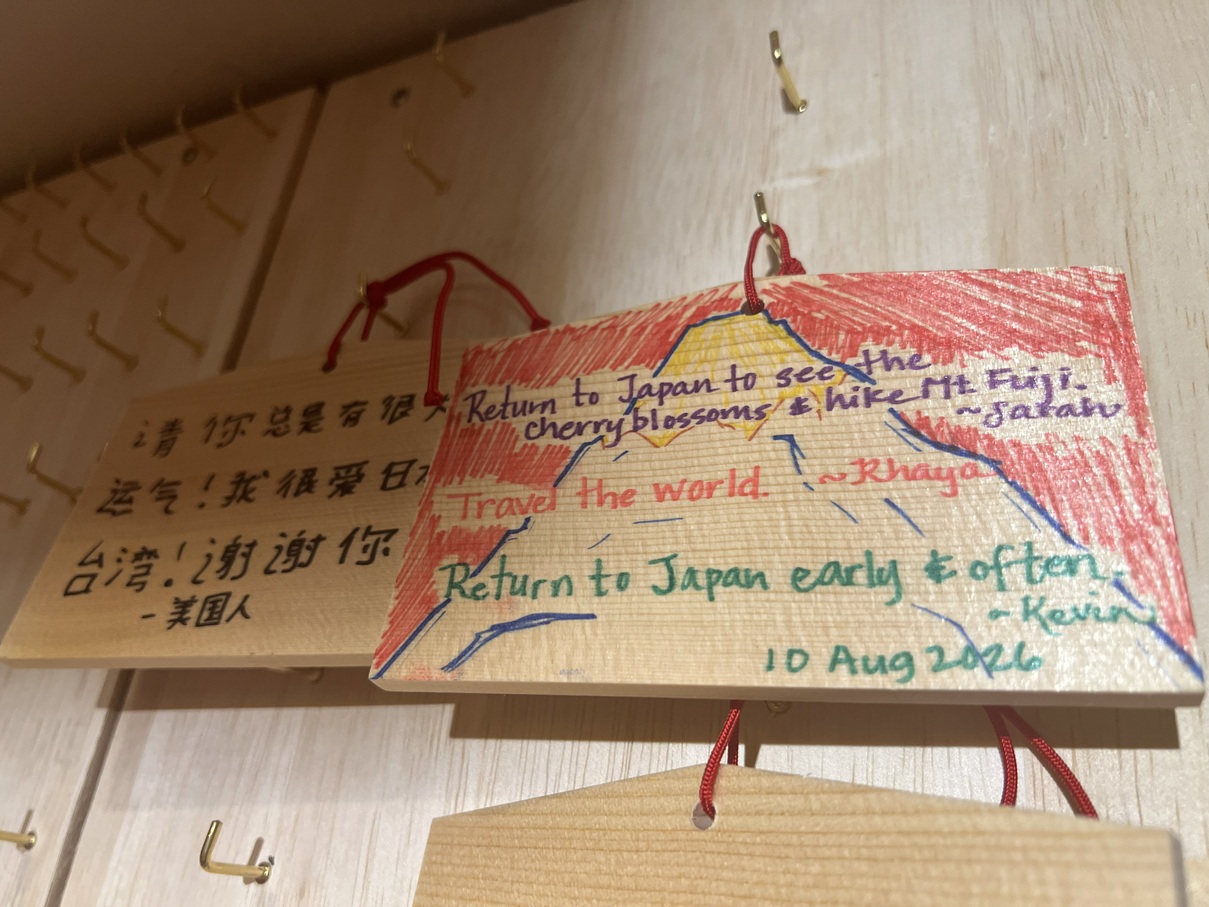 请你总是有很
运气！我很爱日
台湾！谢谢你
-美国人
Return to Japan to see the
cherry blossoms & hike Mt Fuji.
~Sarah
Travel the world. ~Rhaya
Return to Japan early & often.
~Kevin
10 Aug 2026